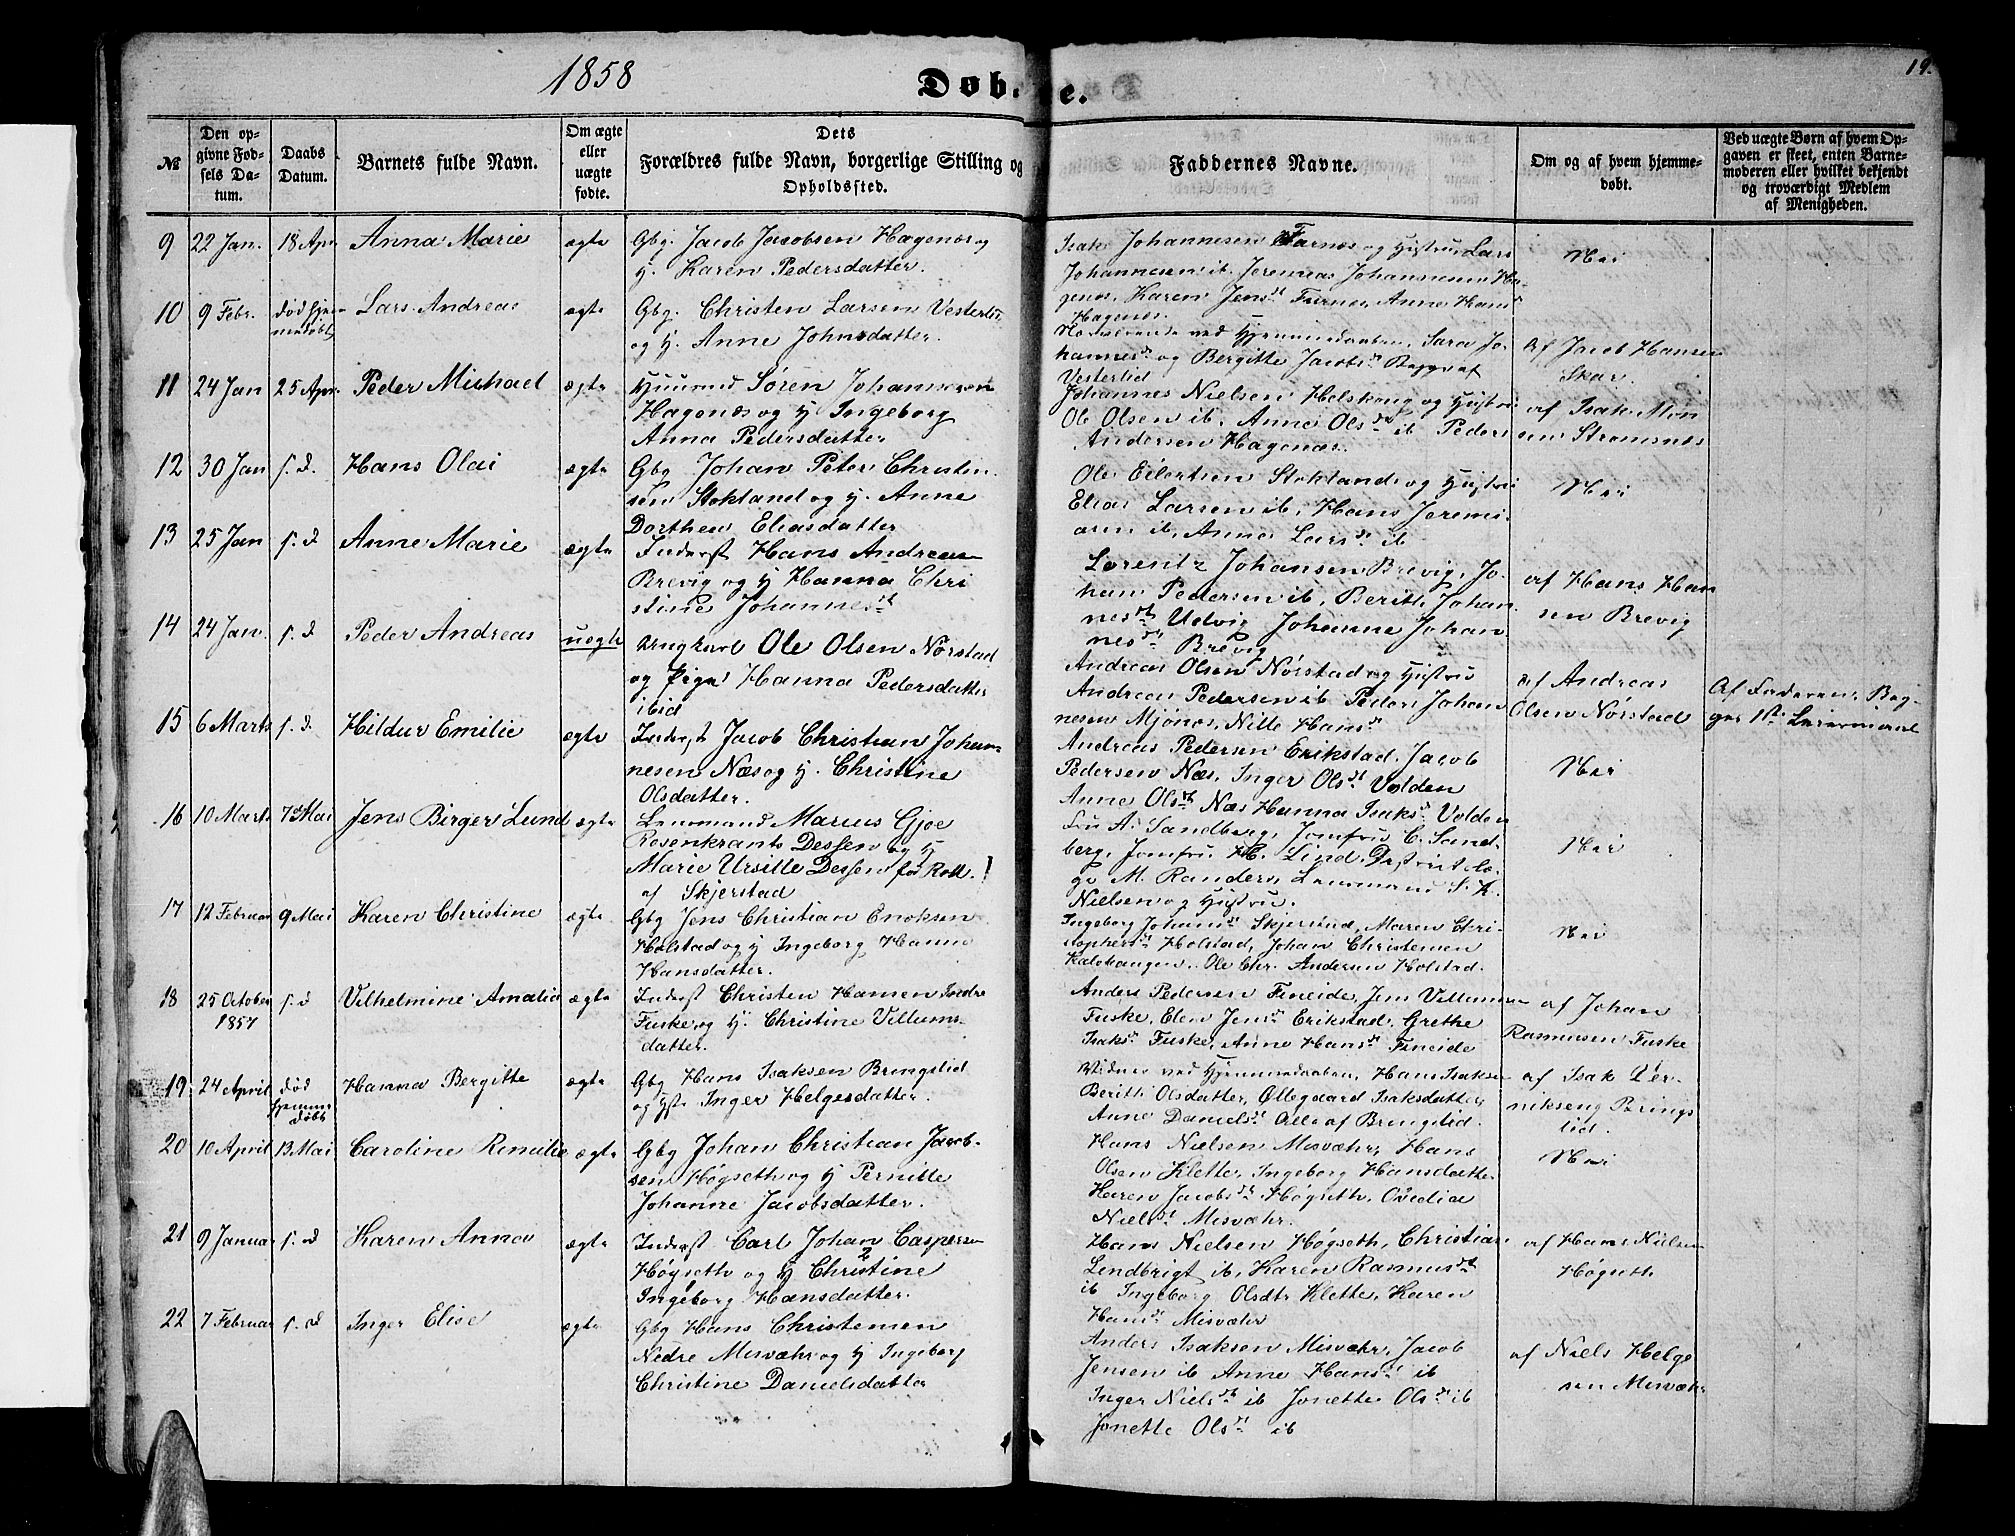 1858
Døbte.
19.
№
Den opgivne Fødsels Datum.
Daabs Datum.
Barnets fulde Navn.
Om ægte eller uægte fødte.
Dets Forældres fulde Navn, borgerlige Stilling og Opholdssted.
Faddernes Navne.
Om og af hvem hjemmedøbt.
Ved uægte Børn af hvem Opgaven er skeet, enten Barnemoderen eller hvilket bekjendt og troværdigt Medlem af Menigheden.
9 22 Jan. 18 Apr. Anna Marie ægte
Gbg. Jacob Jacobsen Hagenæs og
H. Karen Pedersdatter.
Isak Johannesen Farnæs og Hustru Lars
Johannesen ib. Jeremias Johannesen Ha
genæs, Karen Jens dt Furnes, Anne Hans dt
Hagenæs.
Nei
10 9 Febr. død hjem
medøbt Lars Andreas ægte
Gbg. Christen Larsen Vesterlid
og H. Anne Johnsdatter.
Nærværende ved Hjemmedaaben, Sara Jo
hannes dt og Bergitte Jacobs dt Begge af
Vesterlid
af Jacob Hansen
Skar.
11 24 Jan 25 Apr. Peder Michael ægte
Huusmd Søren Johannesen
Hagenæs og H Ingeborg
Anna Pedersdatter
Johannes Nielsen Helskoug og Hustru
Ole Olsen ib. Anne Ols dt ib Peder
Andersen Hagenæs.
af Isak Mon
sen Strømsnes
12 30 Jan s. d. Hans Olai ægte
Gbg Johan Peter Christen
sen Stokland og H. Anne
Dorthea Eliasdatter
Ole Eilertsen Stokland og Hustru
Elias Larsen ib, Hans Jeremi
asen ib, Anne Lars dt ib
Nei
13 25 Jan s. d Anne Marie ægte
Inderst Hans Andreas
Brevig og H Hanna Chri
stine Johannes dt
Lorentz Johansen Brevig, Jo
han Pedersen ib, Berit Johan
nes dt Udvig Johanne Johan
nes dt Brevig
af Hans Han
sen Brevig
14 24 Jan. s. d Peder Andreas uægte
Ungkarl Ole Olsen Nørstad
og Pige Hanna Pedersdatter
ibid
Andreas Olsen Nørstad og Hustru
Andreas Pedersen ib Peder Johan
nesen Mjønæs, Nille Hans dt
af Andreas
Olsen Nørstad
Af Faderen. Beg
ges 1ste Leiermaal
15 6 Marts s. d. Hildur Emilie ægte
Inderst Jacob Christian Johan
nesen Næs og H. Christine
Olsdatter.
Andreas Pedersen Erikstad, Jacob
Pedersen Næs, Inger Ols dt Volden
Anne Ols dt Næs Hanna Isaks dt Volden
Nei
16 10 Marts 7de Mai Jens Birger Lund ægte
Lensmand Marius Gjøe
Rosenkrants Dessen og H
Marie Ursille Dessen født Roll.
af Skjerstad
Fru A. Sandberg, Jomfru C. Sand
berg, Jomfru H. Lind, Distriktslæ
ge M. Randers, Lensmand S. K.
Nielsen og Hustru.
Nei
17 12 Februar 9 Mai Karen Christine ægte
Gbg Jens Christian Enoksen
Holstad og H Ingeborg Hanna
Hansdatter.
Ingeborg Johans dt Skjerstad, Maren Chri
stophers dt Holstad, Johan Christensen
Kalvhaugen, Ole Chr. Andersen Holstad.
Nei
18 25 October
1857 s. d Vilhelmine Amalia ægte
Inderst Christen Hansen Indre
Fuske og H. Christine Villums
datter.
Anders Pedersen Fineide, Jens Villumsen
Fuske, Elen Jens dt Erikstad, Grethe
Isaks dt Fuske, Anne Hans dt Fineide
af Johan
Rasmussen Fuske
19 24 April død
hjemme
døbt Hanna Bergitte ægte
Gbg Hans Isaksen Bringslid
og Hst. Inger Helgesdatter.
Vidner ved Hjemmedaaben, Hans Isaksen
Berit Olsdatter, Ollegaard Isaksdatter
Anne Daniels dt Alle af Bringslid.
af Isak
Brings
lid.
20 10 April 13 Mai Caroline Remilie ægte
Gbg Johan Christian Jacob
sen Høgseth og H Pernille
Johanne Jacobsdatter.
Hans Nielsen Misvæhr, Hans
Olsen Klette, Ingeborg Hansdatter
Karen Jacobs dt Høgseth, Ovedia
Niels dt Misvæhr.
Nei
21 9 Januar s. d Karen Anna ægte
Inderst Carl Johan Caspersen
Høgseth og H Christine
Ingeborg Hansdatter.
Hans Nielsen Høgseth, Christian
Lendbrigt ib, Karen Rasmus dt
ib Ingeborg Olsdtr Klette, Karen
Hans dt Misvæhr
af Hans Nielsen
Høgseth
22 7 Februar s. d Inger Elise ægte
Gbg Hans Christensen
Nedre Misvæhr og H Ingeborg
Christine Danielsdatter
Anders Isaksen Misvæhr, Jacob
Jensen ib Anne Hans dt ib
Inger Niels dt ib Jonette Ols dt ib
Jonette Ols dt ib
af Niels Helge
sen Misvæhr